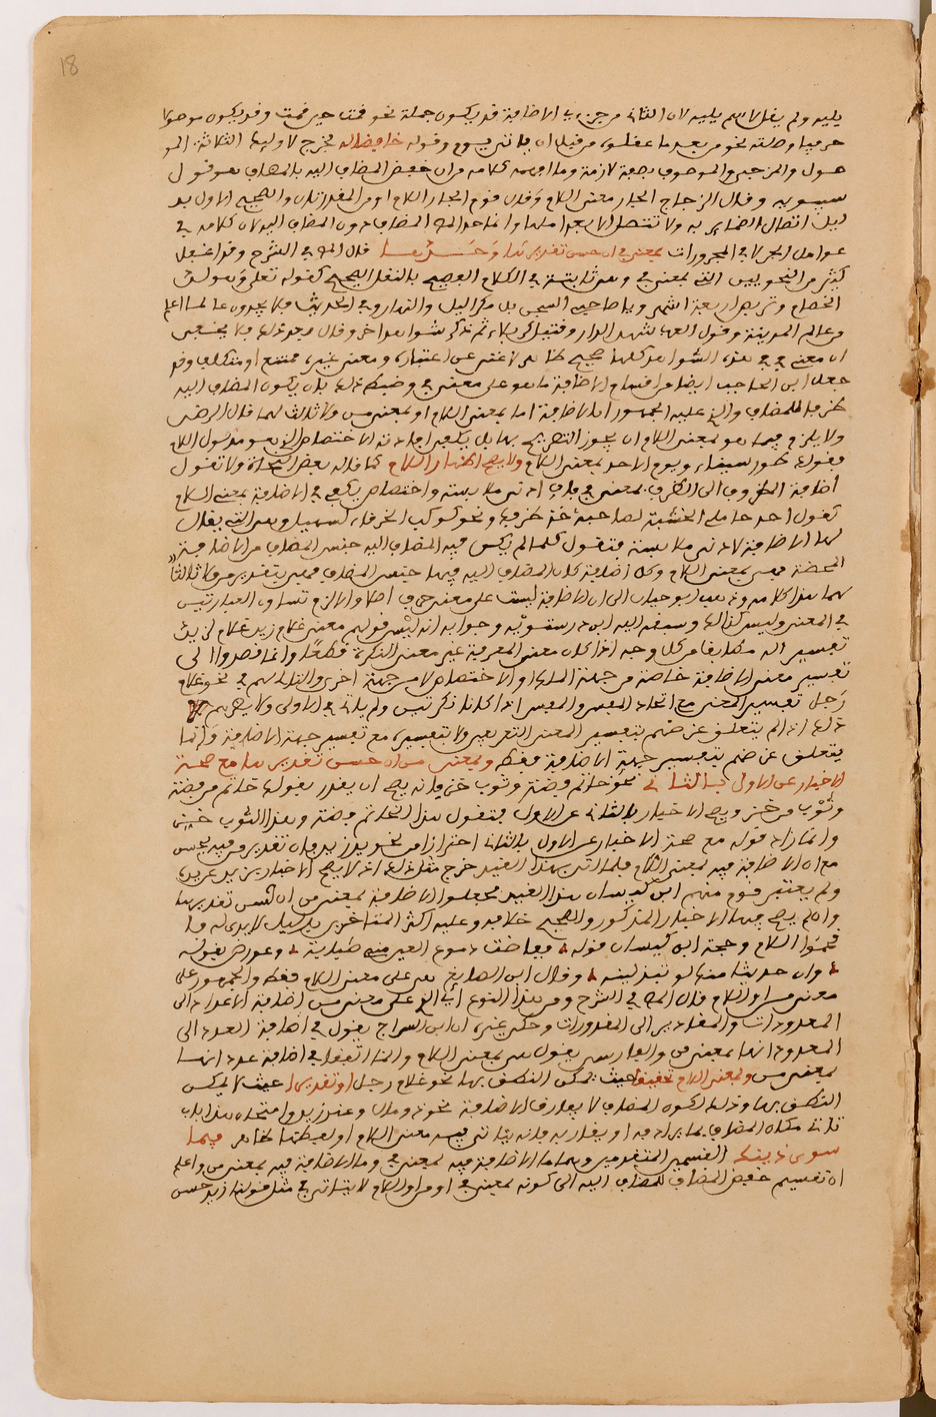 18
يليه ولم يقل لاسم يليه لان الثانى من جزءي الاضافة قد يكون جملة نحو قمت حين قمت وقد يكون موصولا
حرفيا وصلته نحو من بعد ما عقلوه من قبل ان ياتي يوم وقوله خافضا له مخرج لاوليها الثلاثة المو
صول والمزجي والموصوف بصفة لازمة وما افهمه كلامه من ان خفض المضاف اليه بالمضاف هو قول
سيبويه وقال الزجاج الجار معنى اللام وقال قوم الجار اللام او من المقدرتان والصحيح الاول بد
ليل اتصال الضماير به ولا تتصل الا بعواملها وانما حد المص المضاف دون المضاف اليه لان كلامه في
عوامل الجر لا في المجرورات بمعنى في ان حسن تقديرها وحدها قال المص في الشرح وقد اغفل
كثير من النحويين التي بمعنى في وهي ثابتة في الكلام الفصيح بالنقل الصحيح كقوله تعلى وهو الد
الخصام وتربص اربعة اشهر ويا صاحبي السجن بل مكر الليل والنهار وفي الحديث فلا يجدون عالما اعلم
من عالم المدينة وقول العرب شهيد الدار وقتيل كربلاء ثم ذكر شواهد اخر وقال بعد ذلك فلا يخفى
ان معنى في في هذه الشواهد كلها صحيح ظاهر لا غنى عن اعتباره ومعنى غيره ممتنع او متكلف وقد
جعل ابن الحاجب ايضا من اقسام الاضافة ما هو على معنى في وضبطه ذلك بان يكون المضاف اليه
ظرفا للمضاف والذي عليه الجمهور ان الاضافة اما بمعنى اللام او بمعنى من ولا ثالث لهما قال الرضى
ولا يلزم فيما هو بمعنى اللام ان يجوز التصريح بها بل يكفي افادة الاختصاص الذي هو مدلول اللام
فقولك طور سيناء ويوم الاحد بمعنى اللام ولا يصح اظهار اللام كما قاله بعض النحاة ولا نقول
اضافة المظروف الى الظرف بمعنى في فان ادنى ملابسة واختصاص يكفي في الاضافة بمعنى اللام
كقول احد حاملي الخشبة لصاحبه خذ طرفك ونحو كوكب الخرقاء لسهيل وهي التي يقال
لها الاضافة لادنى ملابسة فنقول كلما لم يكن فيه المضاف اليه جنس المضاف من الاضافة
المحضة فهي بمعنى اللام وكل اضافة كان المضاف اليه فيها جنس المضاف فهي بتقدير من ولا ثالث
لهما هذا كلامه وذهب ابو حيان الى ان الاضافة ليست على معنى حرف اصلا والا لزم تساوى العبارتين
في المعنى وليس كذالك وسبقه اليه ابن درستويه وجوابه انه ليس قولهم معنى غلام زيد غلام لزيد
تفسير اله مطابقا من كل وجه اذا كان معنى المعرفة غير معنى النكرة قطعا وانما قصدوا الى
تفسير معنى الاضافة خاصة من جهة الملك او الاختصاص لا من جهة اخرى والقايل لهم في نحو غلام
رجل تفسير المعنى مع اتحاد المفسر والمفسر اذا كانا نكرتين ولم يلزم في الاولى ولا يصح لهم
ذلك اذا لم يتعلق غرضهم بتفسير المعنى التعريفي ولا بتفسيره مع تفسير جهة الاضافة وانما
يتعلق غرضهم بتفسير جهة الاضافة فقط وبمعنى من ان حسن تقديرها مع صحة
الاخبار عن الاول بالثانى نحو خاتم فضة وثوب خز فانه يصح ان يقدر بقولك خاتم من فضة
وثوب من خز ويصح الاخبار بالثانى عن الاول فتقول هذا الخاتم فضة وهذا الثوب خز
وانما زاد قوله مع صحة الاخبار عن الاول بالثانى احترازا من نحو يد زيد فان تقدير من فيه يحسن
مع ان الاضافة فيه بمعنى اللام فلما اتى بهذا القيد خرج مثل ذلك اذ لا يصح الاخبار بزيد عن يده
ولم يعتبر قوم منهم ابن كيسان هذا القيد فجعلوا الاضافة بمعنى من ان حسن تقديرها
وان لم يصح فيها الاخبار المذكور والصحيح خلافه وعليه اكثر المتاخرين بدليل
وحجة ابن كيسان قوله
وان حديثا منك لو تبذلينه وقال ابن الصايغ هي على معنى اللام فقط والجمهور على
معنى من او اللام قال المص في الشرح ومن هذا النوع اي الذي على معنى من اضافة الاعداد الى
المعدودات والمقادير الى المقدورات وحكى غيره ان ابن السراج يقول في اضافة العدد الى
المعدود انها بمعنى من والفارسى يقول هي بمعنى اللام والنار اتفقا في اضافة عدد انها
بمعنى من وبمعنى اللام تحقيقا حيث يمكن النطق بها نحو غلام رجل او تقديرا حيث لا يمكن
النطق بها وذلك لكون المضاف لا يفارق الاضافة نحو ذو مال وعند زيد وامتحان هذا بان
تاتى مكان المضاف بما يرادفه او يقاربه فانه يتاتى فيه معنى اللام او يعطيها ظاهر فيما
سوى ذينك القسمين المتقدمين وهما ما الاضافة فيه بمعنى في وما الاضافة فيه بمعنى من واعلم
ان تقسيم خفض المضاف للمضاف اليه الى كونه بمعنى في او من او اللام لا يتاتى في مثل قولنا زيد حسن